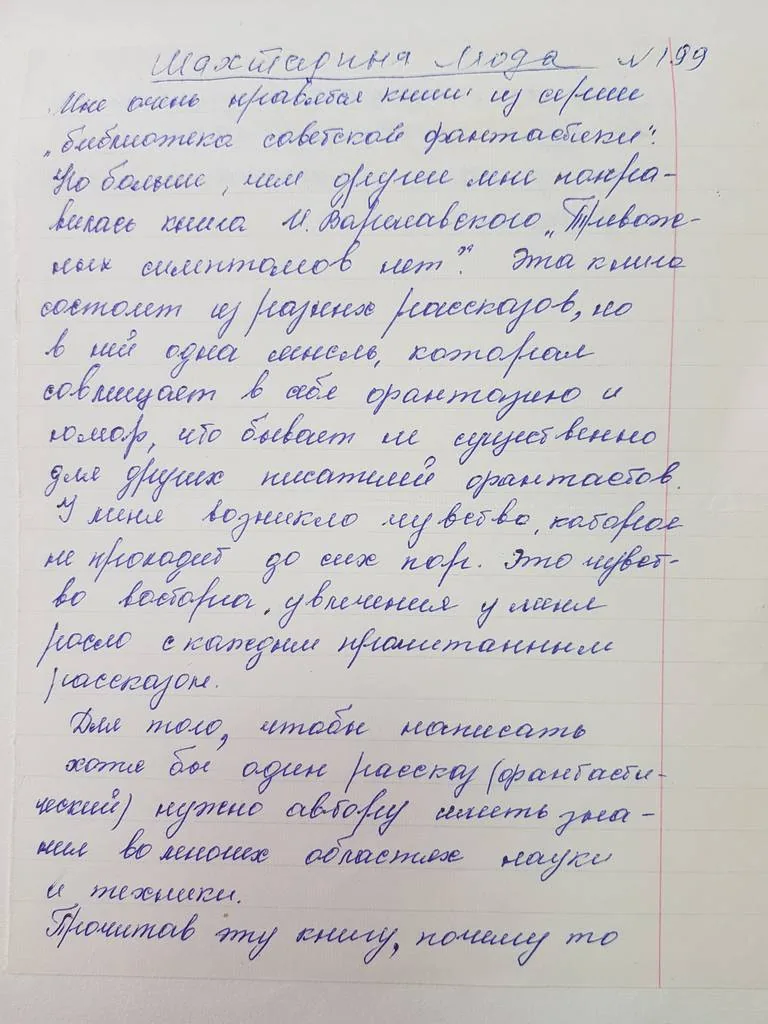 Шахтарина Люда № 199
Мне очень нравятся книги из серии
„библиотека советской фантастики".
Но больше, чем другие мне понра-
вилась книга И. Варшавского „Тревож-
ных симптомов нет". Эта книга
состоит из разных рассказов, но
в ней одна мысль, которая
совмещает в себе фантазию и
юмор, что бывает не существенно
для других писателей фантастов.
У меня возникло чувство, которое
не проходит до сих пор. Это чувст-
во восторга, увлечения у меня
росло с каждым прочитанным
рассказом.
Для того, чтобы написать
хотя бы один рассказ (фантасти-
ческий) нужно автору иметь зна-
ния во многих областях науки
и техники.
Прочитав эту книгу, почему то